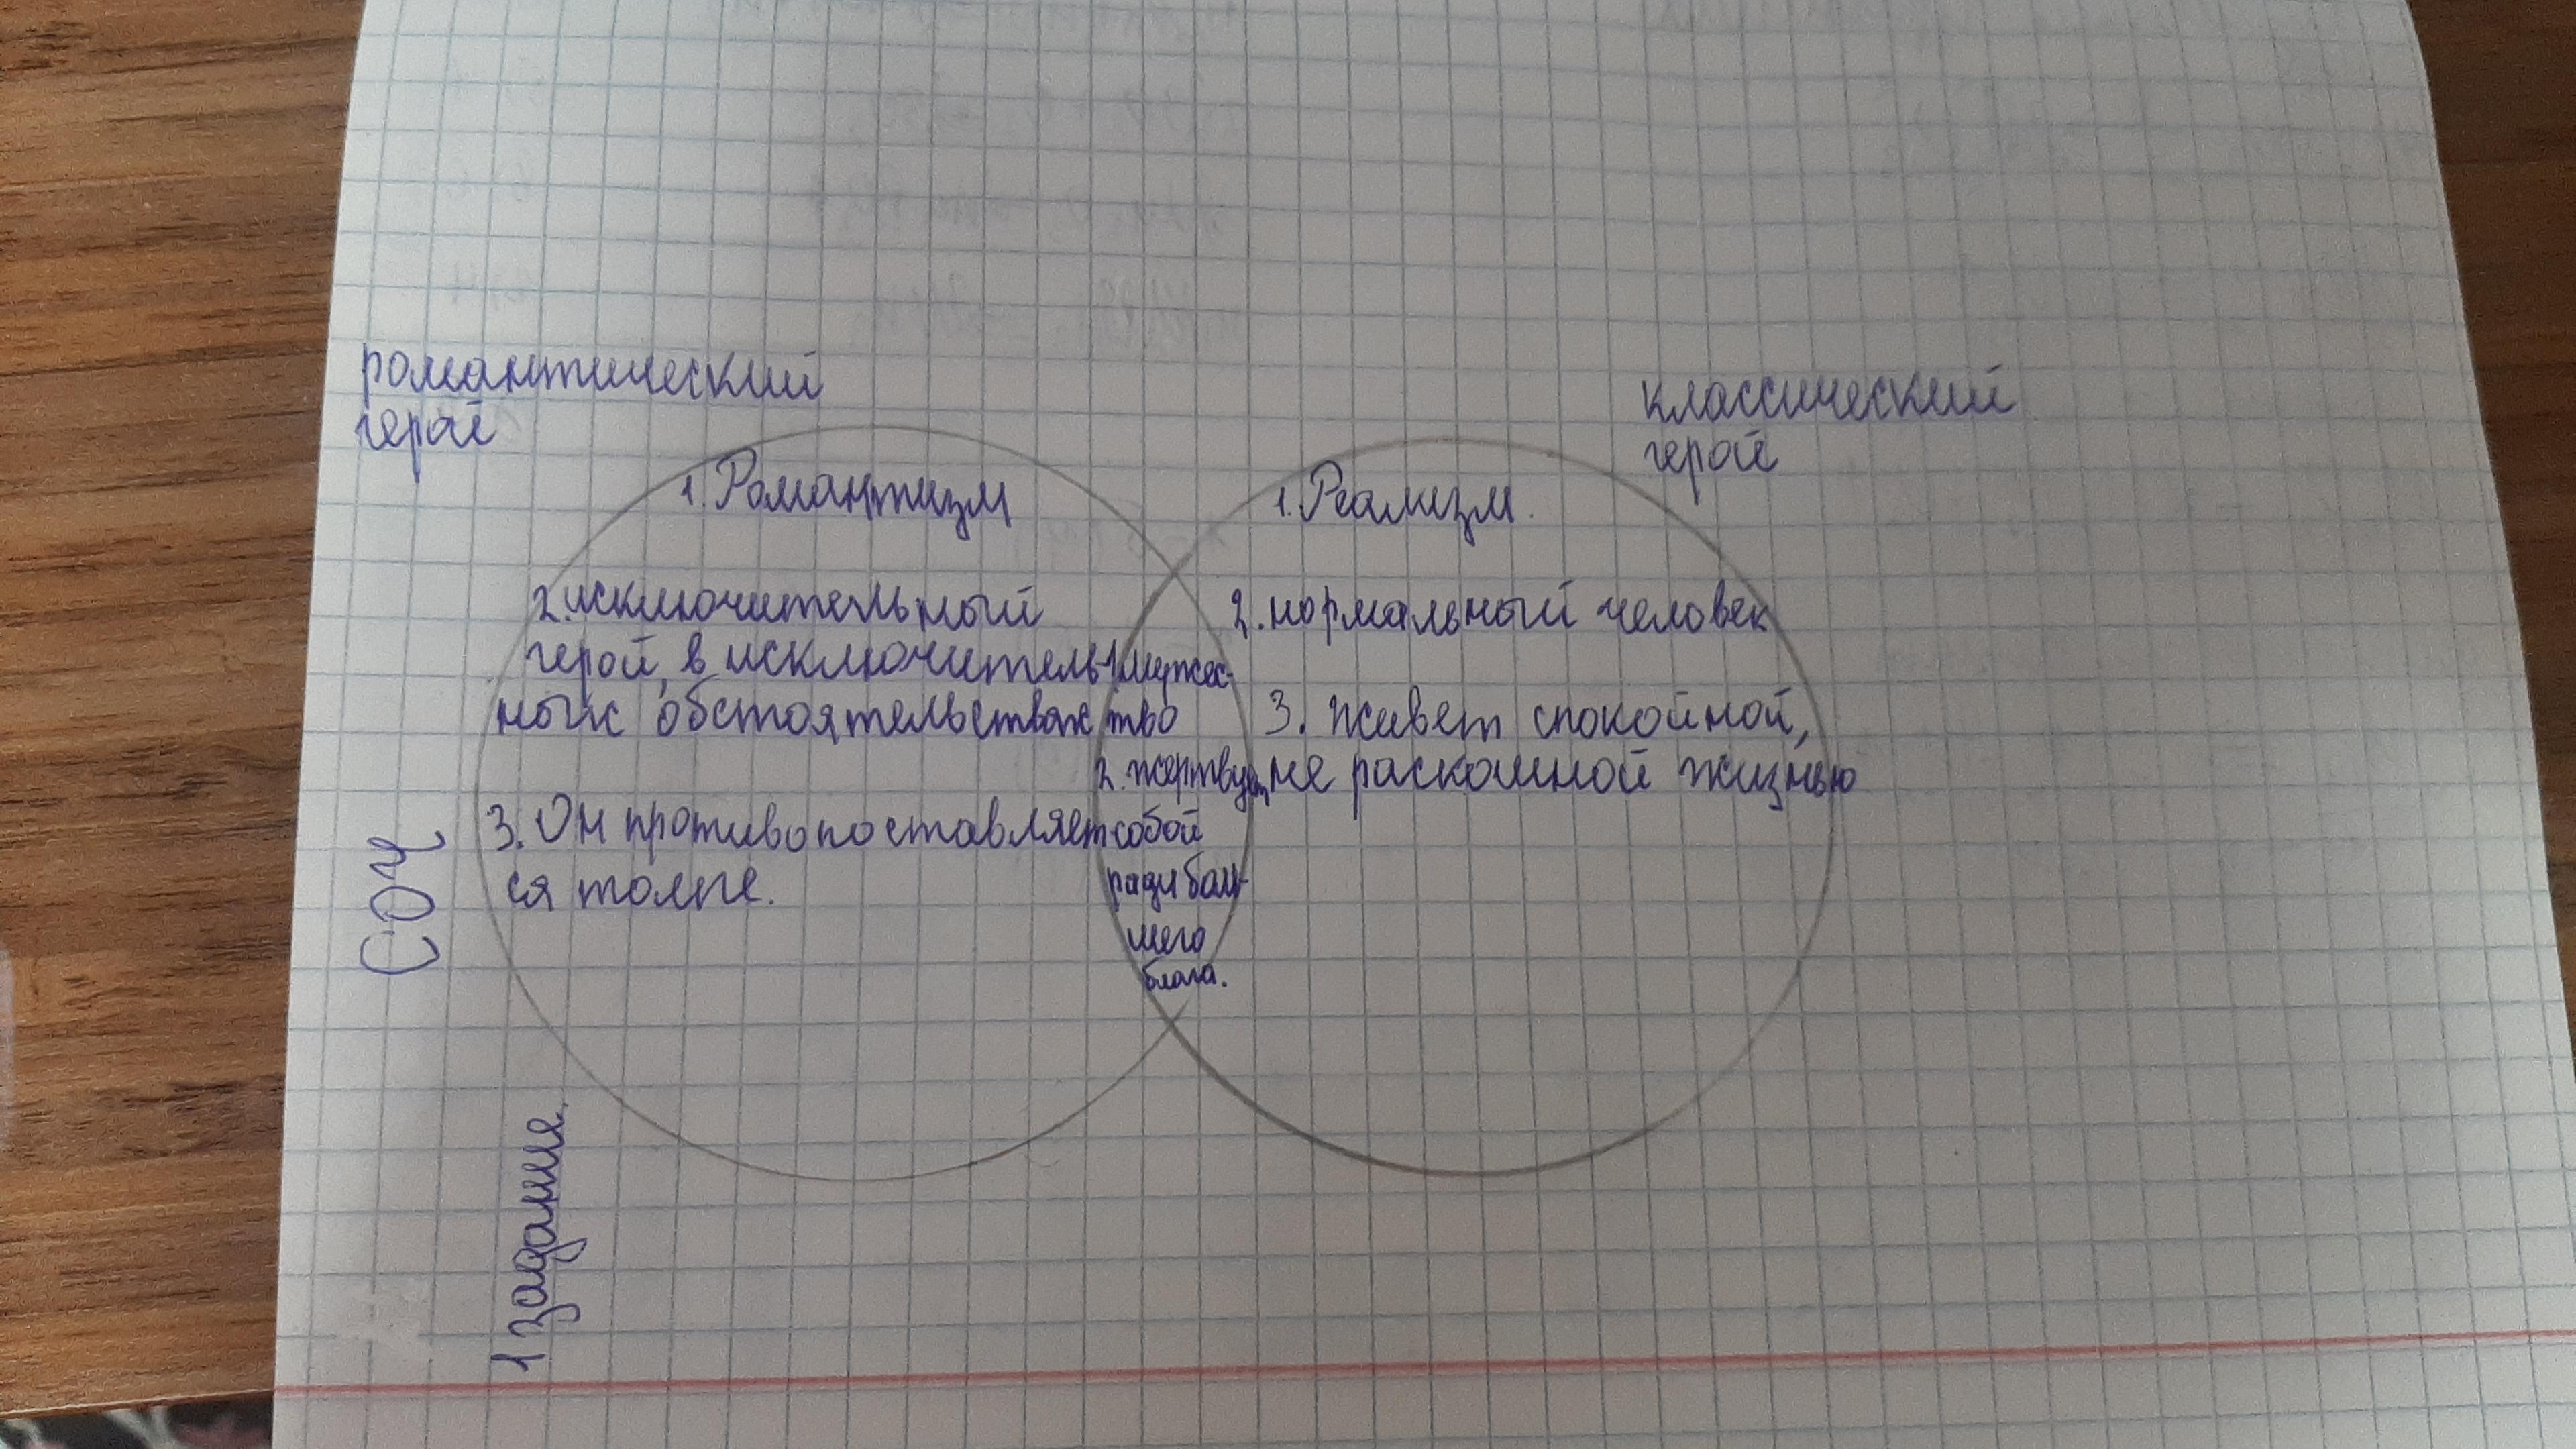 романтический
герой
классический
герой
1. Романтизм
2. исключительный
герой, в исключитель-
ных обстоятельствах
3. Он противопоставляет-
ся толпе.
1. мужес-
тво
2. жертвует
собой
ради боль-
шего
блага.
1. Реализм.
2. нормальный человек
3. живет спокойной,
не раскошной жизнью
СОЧ
1 задание.